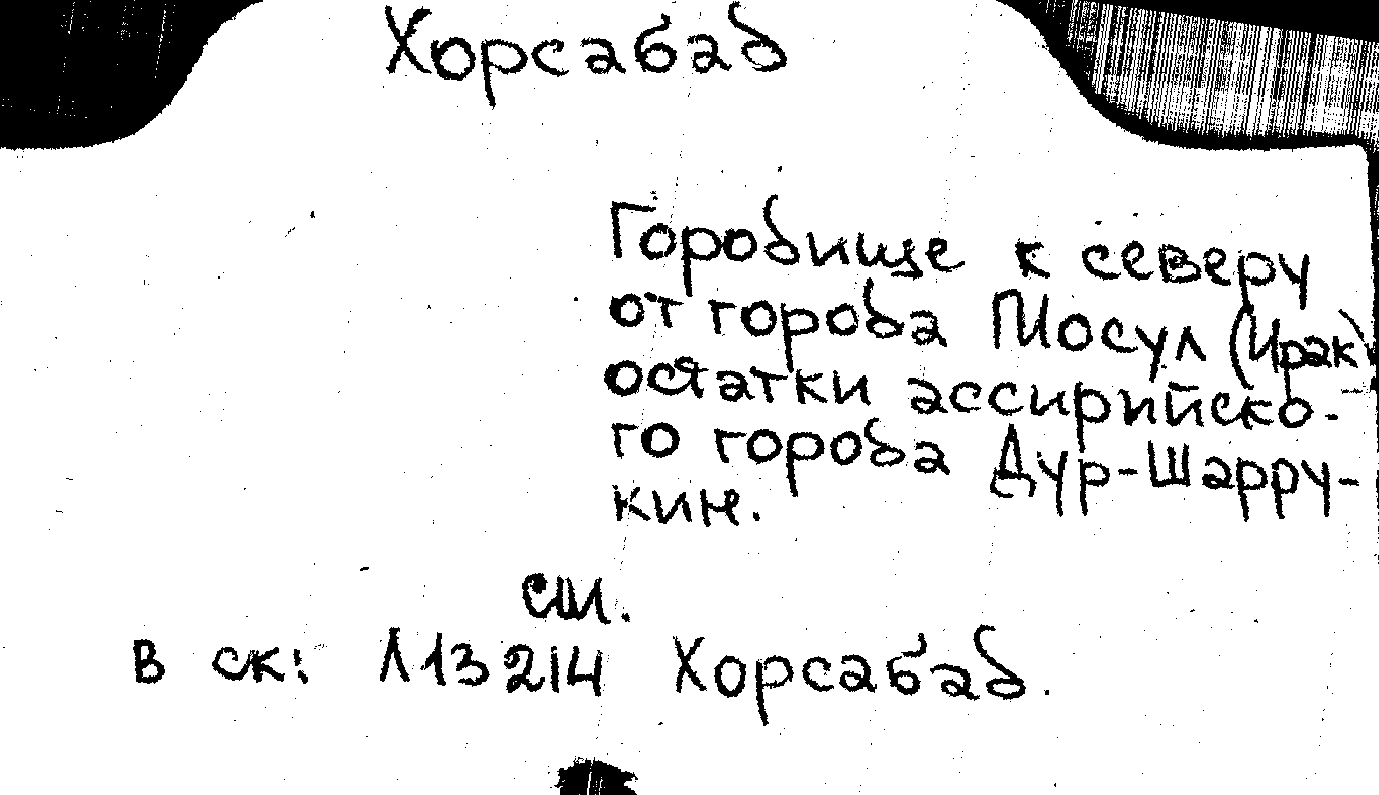 Хорсабад
Городище к северу
от города Мосул (Ирак)
остатки ассирийско-
го города Дур-Шарру-
кин.
см.
В ск: Л13214 Хорсабад.